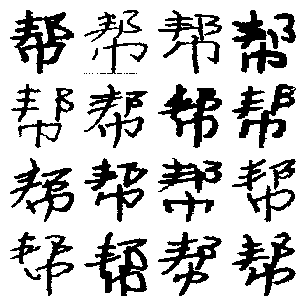 帮帮帮帮
帮帮帮帮
帮帮帮帮
帮帮帮帮